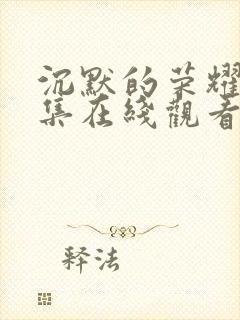 沉默的荣耀
集在线觀看
释法